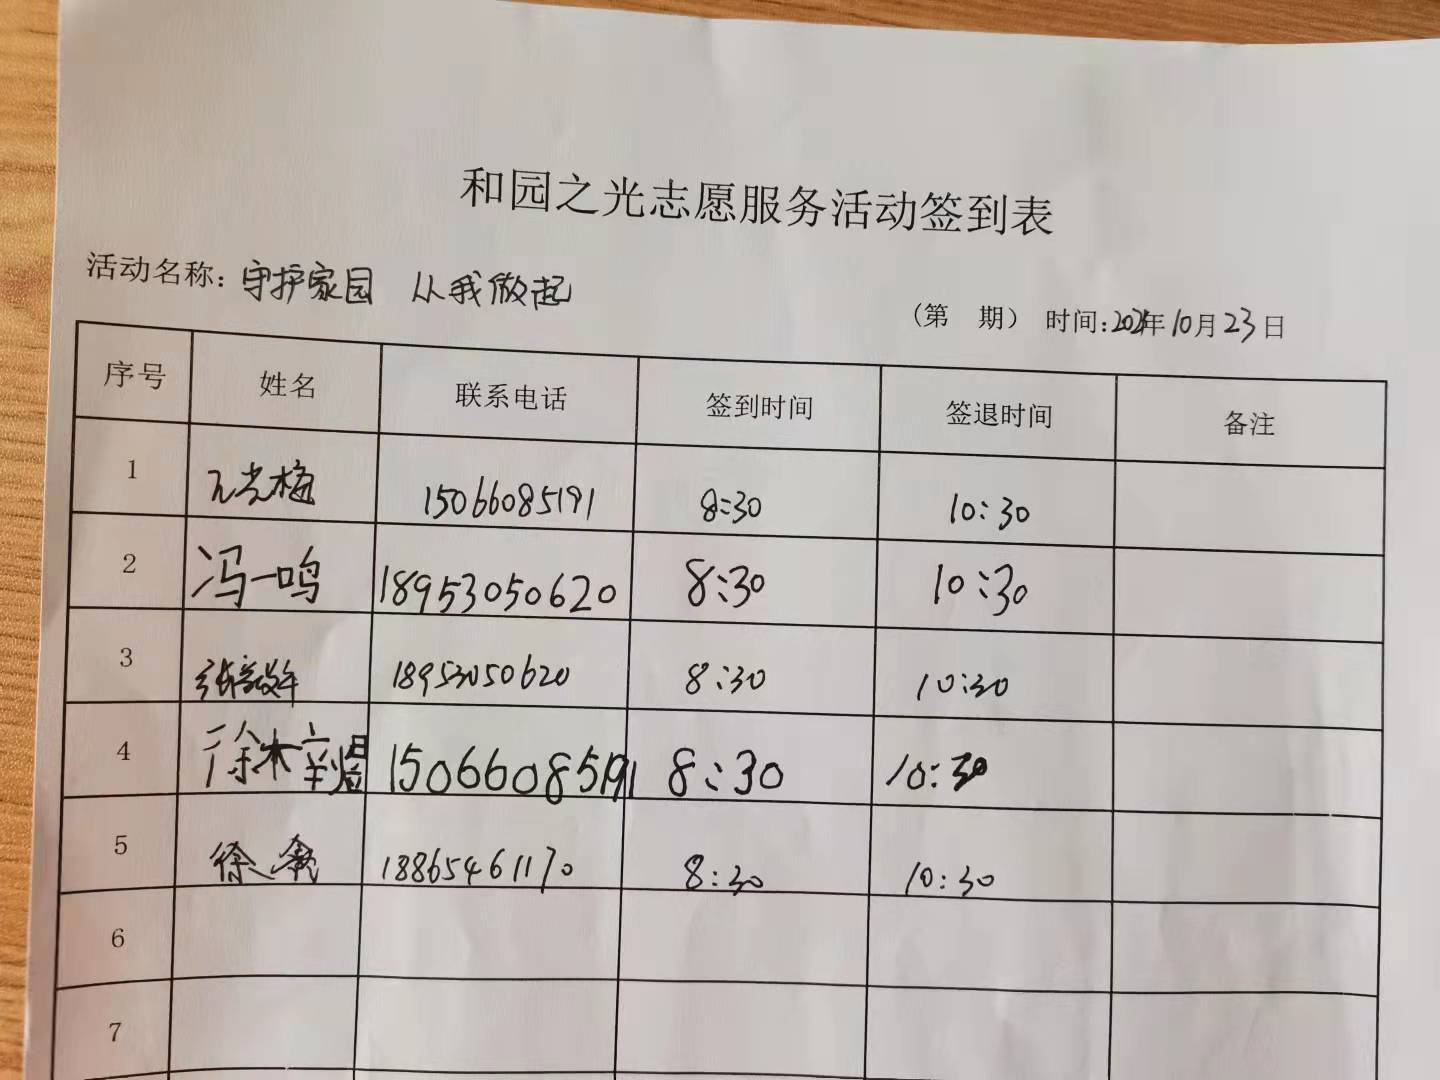 和园之光志愿服务活动签到表
活动名称：守护家园 从我做起
（第 期） 时间：2021年10月23日
序号 姓名 联系电话 签到时间 签退时间 备注
1 15066085191 8:30 10:30
2 冯一鸣 18953050620 8:30 10:30
3 18953050620 8:30 10:30
4 徐梓煜 15066085191 8:30 10:30
5 徐 18865461170 8:30 10:30
6
7